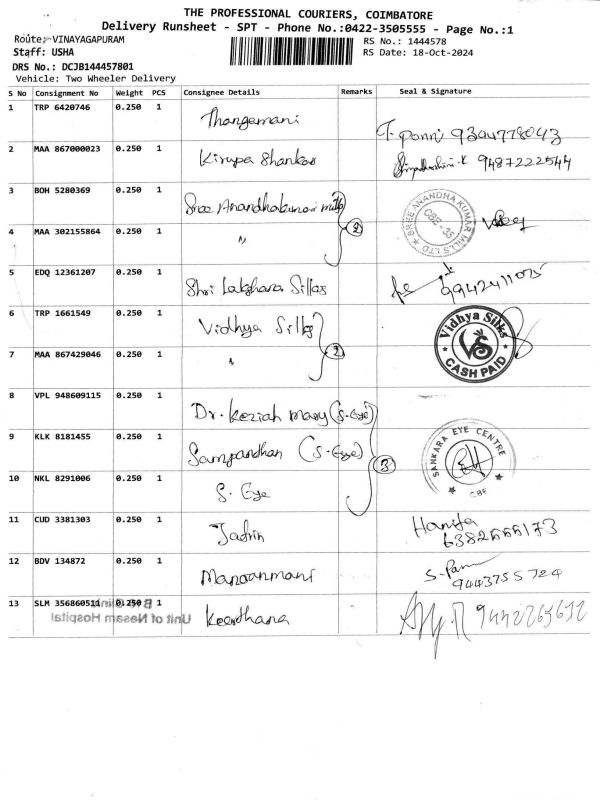 THE PROFESSIONAL COURIERS, COIMBATORE
Delivery Runsheet - SPT - Phone No.:0422-3505555 - Page No.:1
Route:-VINAYAGAPURAM
Staff: USHA
RS No.: 1444578
RS Date: 18-Oct-2024
DRS No.: DCJB144457801
Vehicle: Two Wheeler Delivery
S No Consignment No Weight PCS Consignee Details Remarks Seal & Signature
1 TRP 6420746 0.250 1 Thangamani
T. Ponni 9344778043
2 MAA 867000023 0.250 1 Kirupa Shankar 9487222544
3 BOH 5280369 0.250 1 Sree Anandhakumar mills
SREE ANANDHA KUMAR MILLS LTD
CBE - 35
2
4 MAA 302155864 0.250 1 "
5 EDQ 12361207 0.250 1 Shri Lakshara Silks
6 TRP 1661549 0.250 1 Vidhya Silks
2
Vidhya Silks
VS
CASH PAID
7 MAA 867429046 0.250 1 "
8 VPL 948609115 0.250 1 Dr. Keziah Mary (S-Eye)
9 KLK 8181455 0.250 1 Sampandhan (S-Eye)
3
SANKARA EYE CENTRE
CBE
10 NKL 8291006 0.250 1 S. Eye
11 CUD 3381303 0.250 1 Jadrin
Hanifa
12 BDV 134872 0.250 1 Manonmani
9443755724
13 SLM 356860511 0.250 1 Keerthana
9442265632
Unit of Nasam Hospital